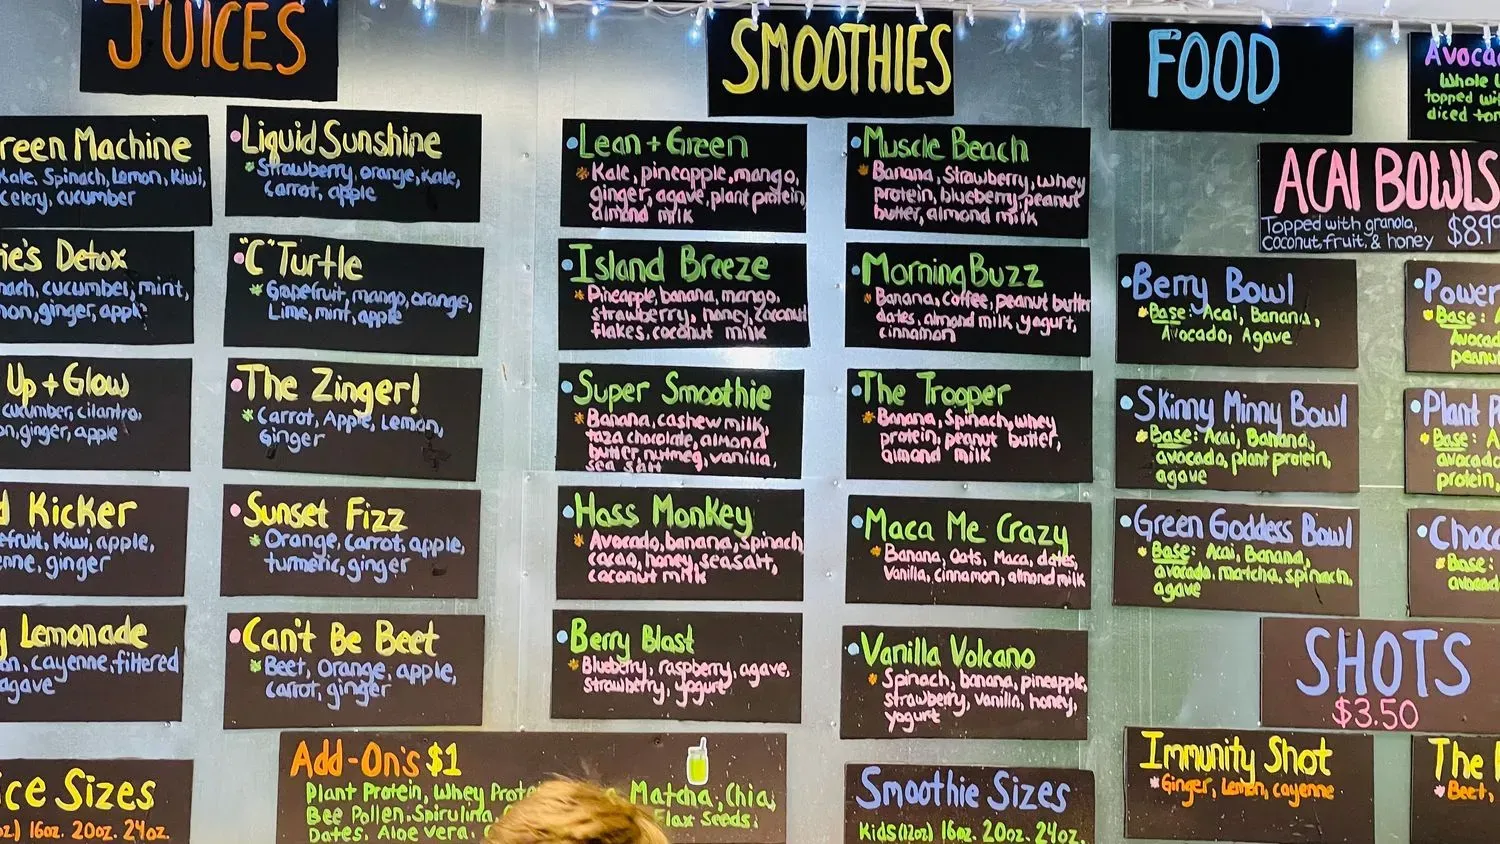 JUICES
reen Machine
Kale, Spinach, Lemon, Kiwi,
celery, cucumber
ie's Detox
nach, cucumber, mint,
on, ginger, apple
Up + Glow
cucumber, cilantro,
on, ginger, apple
d Kicker
efruit, Kiwi, apple,
enne, ginger
y Lemonade
on, cayenne, filtered
agave
ice Sizes
oz) 16oz. 20oz. 24oz.
Liquid Sunshine
Strawberry, orange, Kale,
carrot, apple
"C" Turtle
Grapefruit, mango, orange,
Lime, mint, apple
The Zinger!
Carrot, Apple, Lemon,
Ginger
Sunset Fizz
Orange, Carrot, apple,
turmeric, ginger
Can't Be Beet
Beet, Orange, apple,
carrot, ginger
Add-On's $1
Plant Protein, Whey Prote Matcha, Chia,
Bee Pollen, Spirulina, Flax Seeds,
Dates, Aloe vera,
SMOOTHIES
Lean + Green
Kale, pineapple, mango,
ginger, agave, plant protein,
almond milk
Island Breeze
Pineapple, banana, mango,
strawberry, honey, coconut
flakes, coconut milk
Super Smoothie
Banana, cashew milk,
taza chocolate, almond
butter, nutmeg, vanilla,
sea salt
Hass Monkey
Avocado, banana, spinach,
cacao, honey, sea salt,
coconut milk
Berry Blast
Blueberry, raspberry, agave,
strawberry, yogurt
Muscle Beach
Banana, Strawberry, whey
protein, blueberry, peanut
butter, almond milk
Morning Buzz
Banana, coffee, peanut butter
dates, almond milk, yogurt,
cinnamon
The Trooper
Banana, Spinach, whey
protein, peanut butter,
almond milk
Maca Me Crazy
Banana, Oats, Maca, dates,
Vanilla, cinnamon, almond milk
Vanilla Volcano
Spinach, banana, pineapple,
strawberry, vanilla, honey,
yogurt
Smoothie Sizes
Kids (12oz) 16oz. 20oz. 24oz.
FOOD
Avoca
Whole
topped wit
diced tom
ACAI BOWLS
Topped with granola,
coconut, fruit, & honey $8.99
Berry Bowl
Base: Acai, Banana,
Avocado, Agave
Skinny Minny Bowl
Base: Acai, Banana,
avocado, plant protein,
agave
Green Goddess Bowl
Base: Acai, Banana,
avocado, matcha, spinach,
agave
Power
Base: A
Avocad
peanu
Plant P
Base: A
avocado
protein,
Choco
Base:
avocad
SHOTS
$3.50
Immunity Shot
Ginger, Lemon, cayenne
The
Beet,